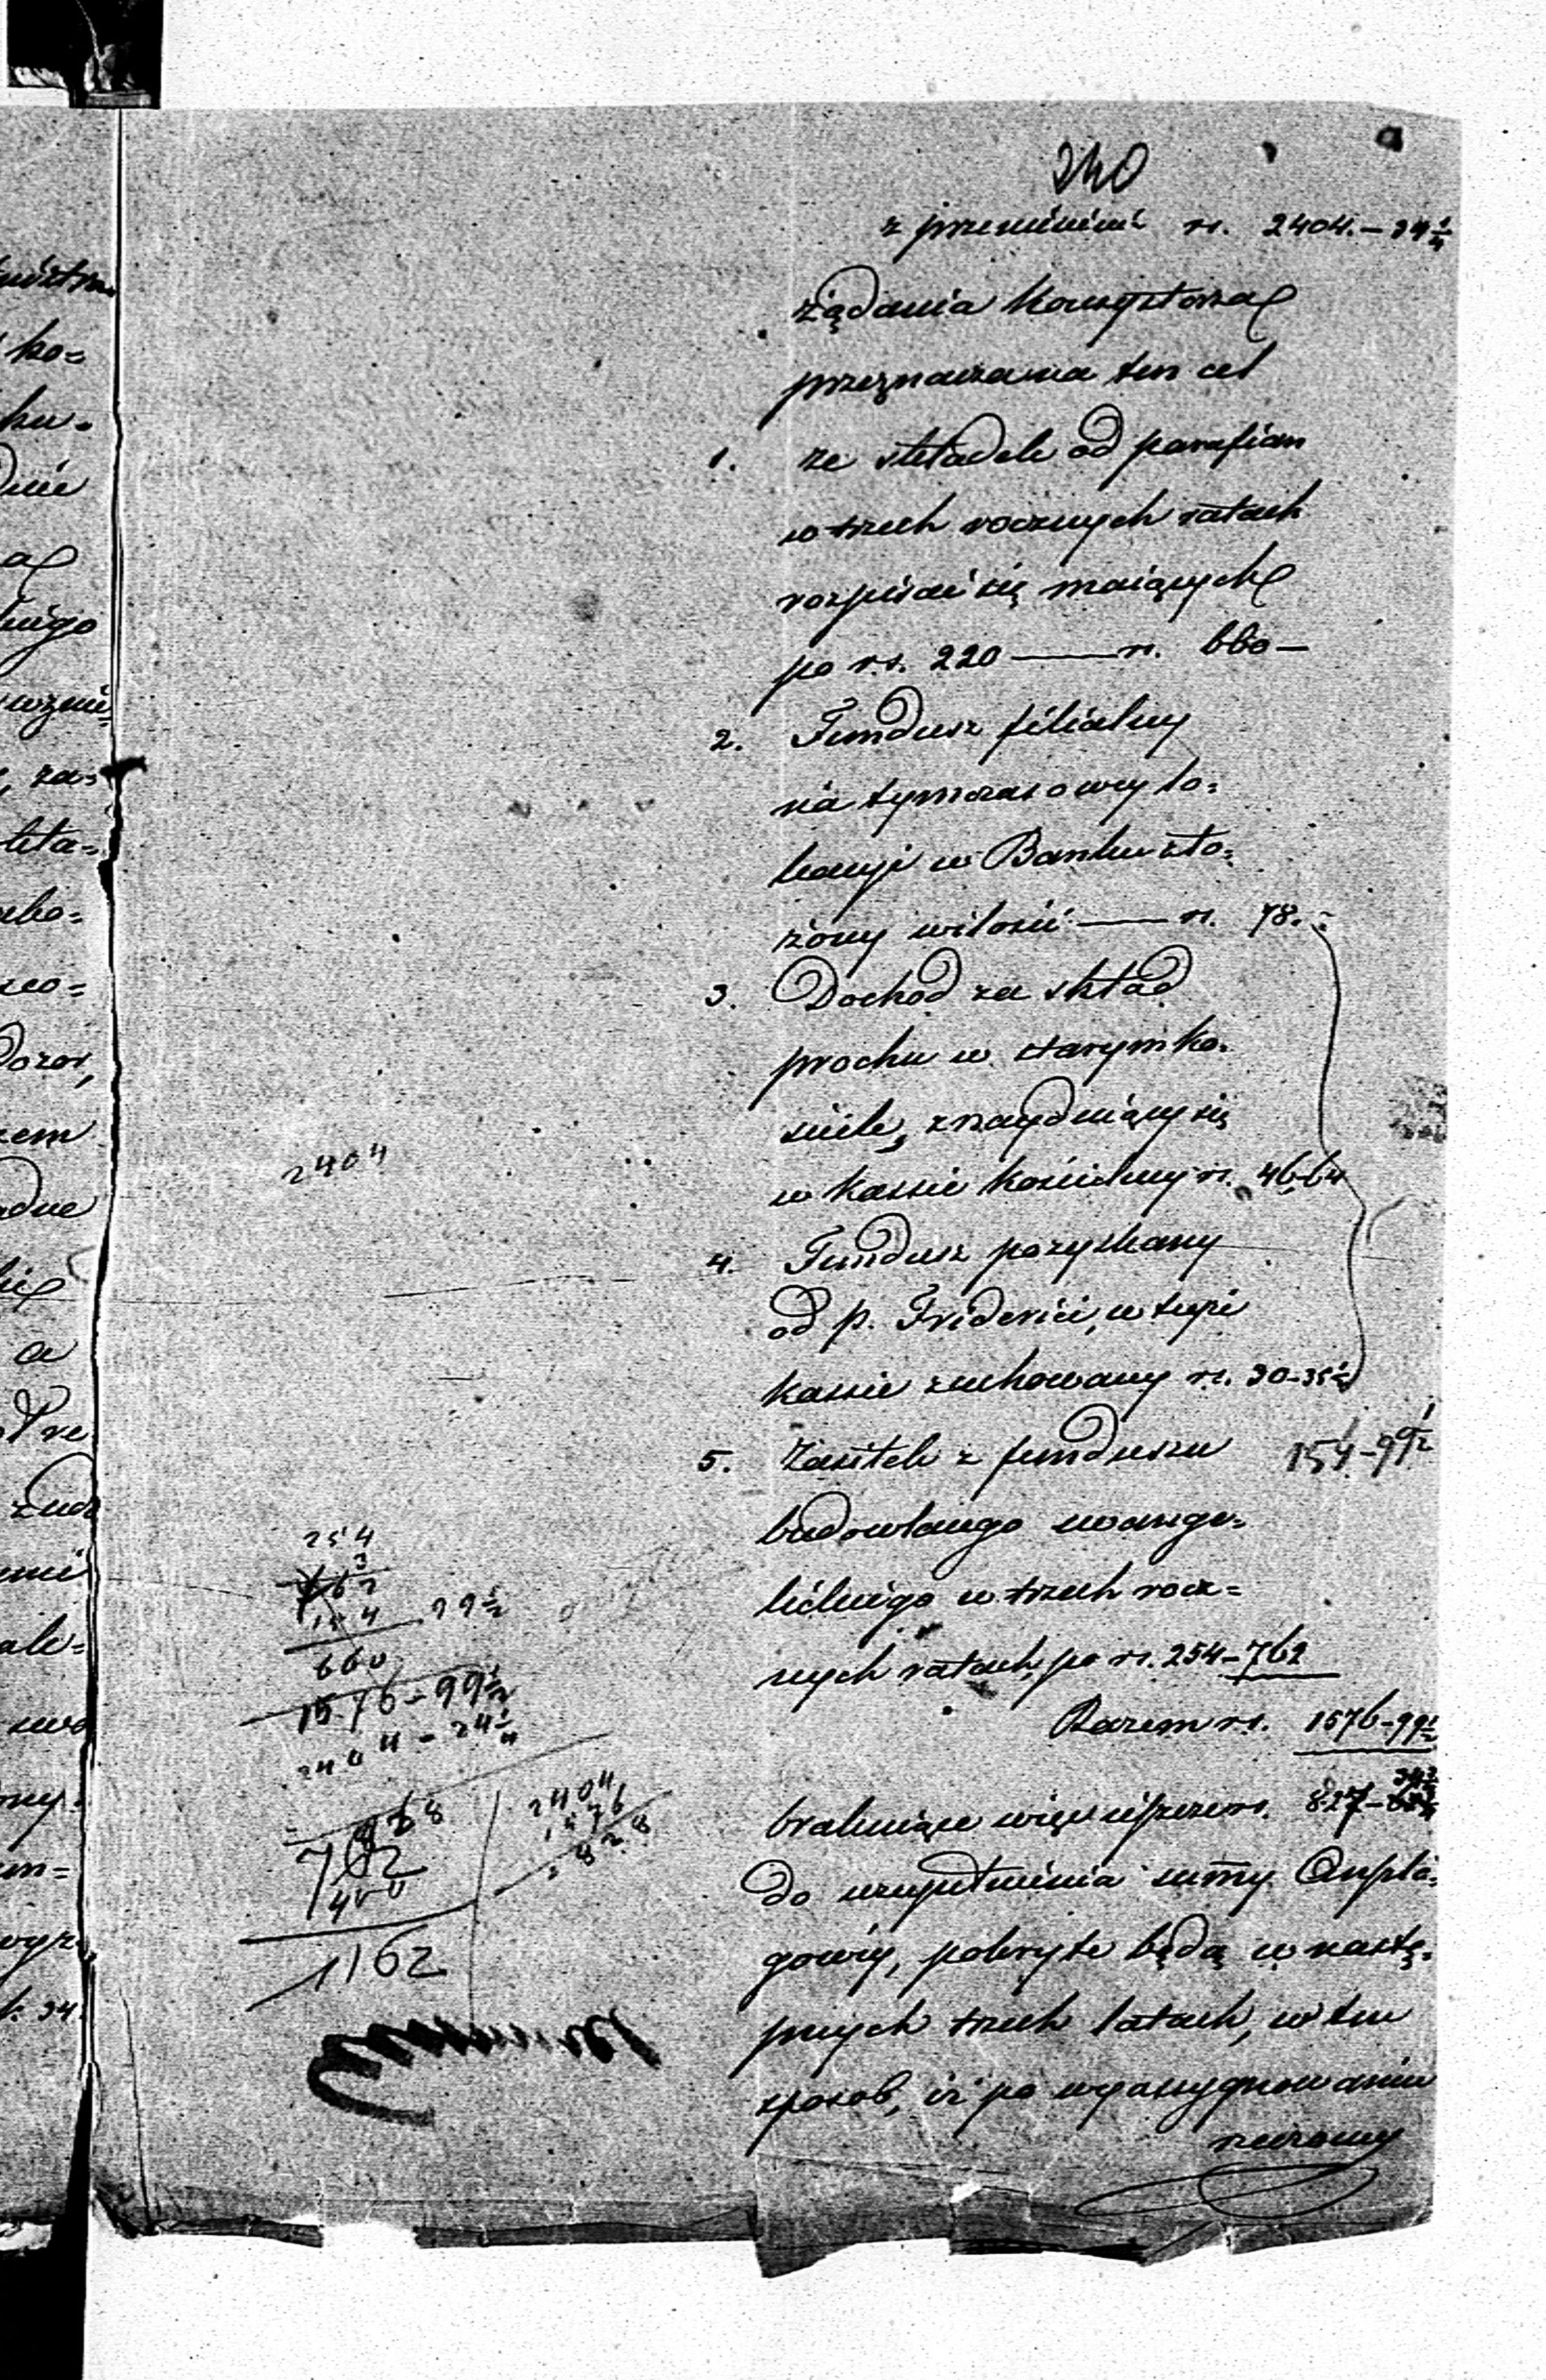 240
z przeniesień rs. 2404.–24¼
żądania Konsystorza
przeznacza na ten cel
1. ze składek od parafian
w trzech rocznych ratach
rozpisać się maiących
po rs. 220 — rs. 660–
2. Fundusz filialny
na tymczasowey lo=
kacyi w Banku zło=
żony w ilości — rs. 78.–
3. Dochod za skład
prochu w starym ko=
ściele, znayduiący się
w kassie kościelney rs. 46.64
4. Fundusz pozyskany
od p. Friderici, w teyże
kassie zachowany rs. 30–35½
154–99½
5. Zasiłek z funduszu
budowlanego ewange=
lickiego w trzech rocz=
nych ratach po rs. 254–762
Razem rs. 1576–99½
brakuiące więc ieszcze rs. 827–24¾
do uzupełnienia summy Anszla=
gowéy, pokryte będą w nastę=
pnych trzech latach, w ten
sposob, iż po wyassygnowaniu
rzeczonéy
2404
254
3
762
154 99½
660
1576–99½
2404–24¼
762
400
1162
2404
1576
828